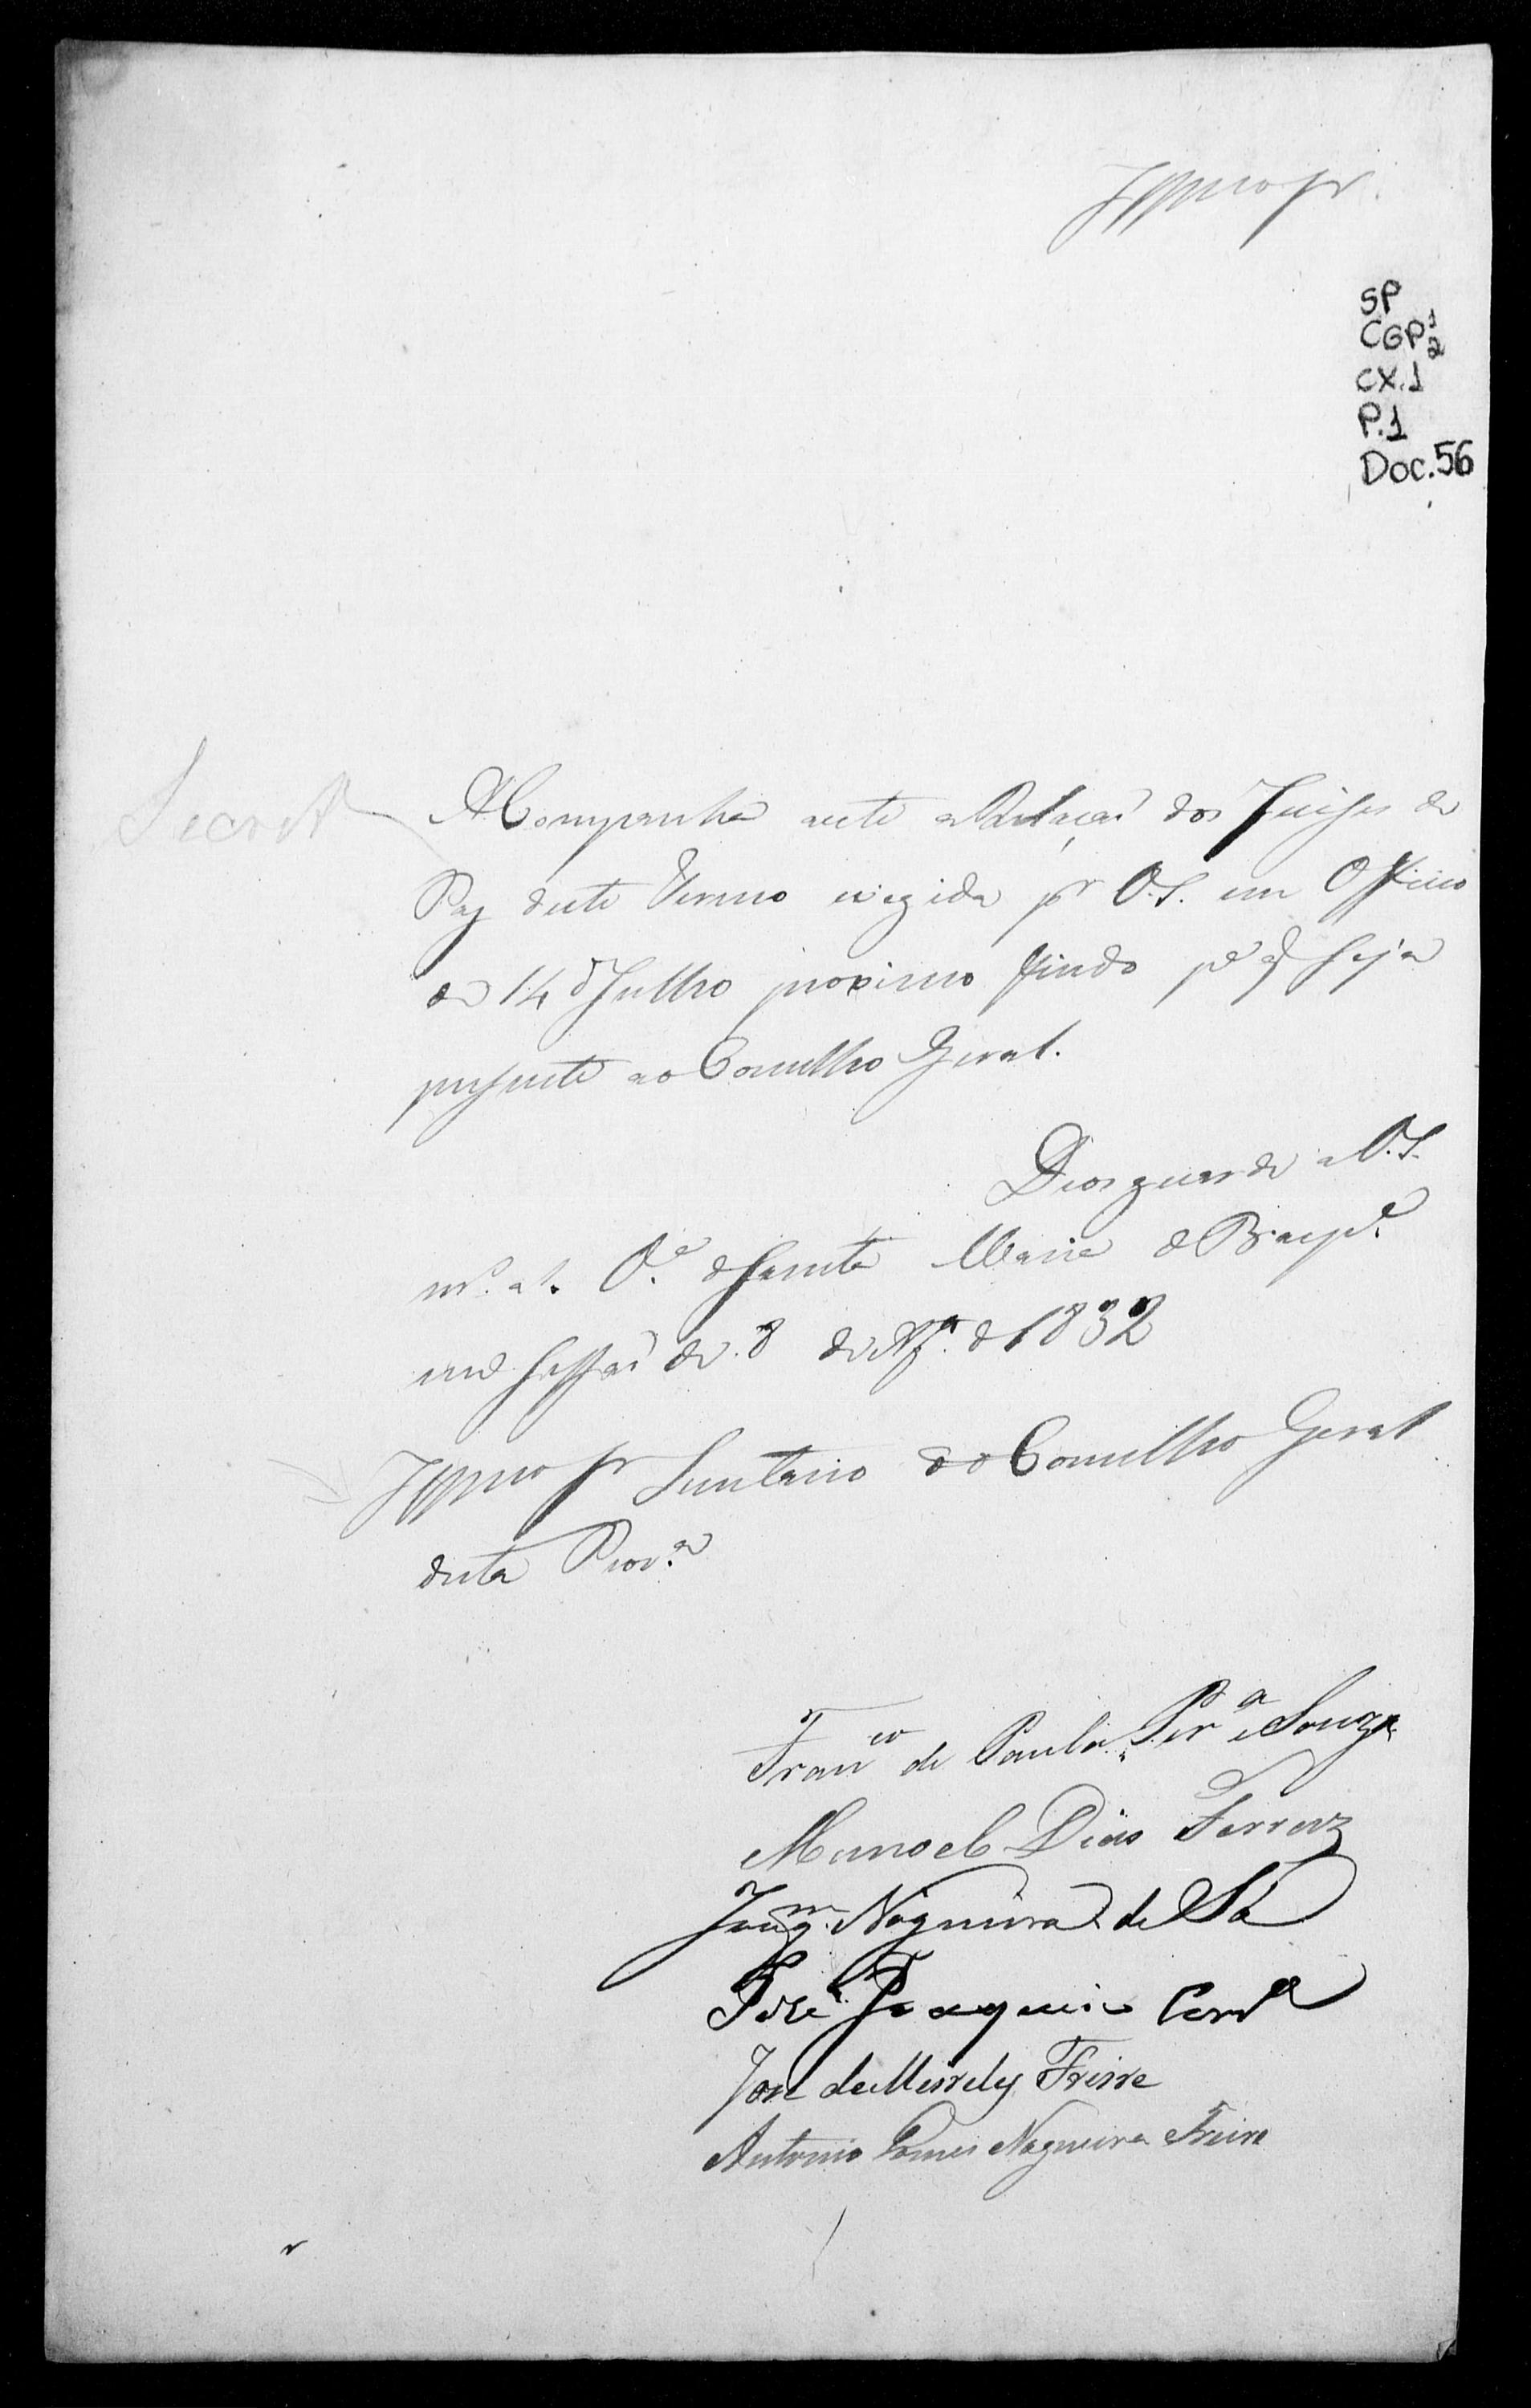 Illmo Snr.
SP
CGP1
2
CX.1
P.1
Doc.56
Secret
Acompanha a este a Relaçaõ dos Juises de
Paz deste Termo exegida pr V.S. em Officio
de 14 d' Julho proximo findo pa q' seja
presente ao Conselho Geral.
Deos guarde a V.S.
ms. as. Va. de Santa Maria de Baepe.
em Sessaõ de 8 de Agto. de 1832
Illmo Snr Secretario do Conselho Geral
desta Prova
Franco de Paula Pera e Souza
Manoel Dias Ferraz
Joaqm. Nogueira de Sá
José Joaquim Cordo
José de Meirelles Freire
Antonio Gomes Nogueira Freire